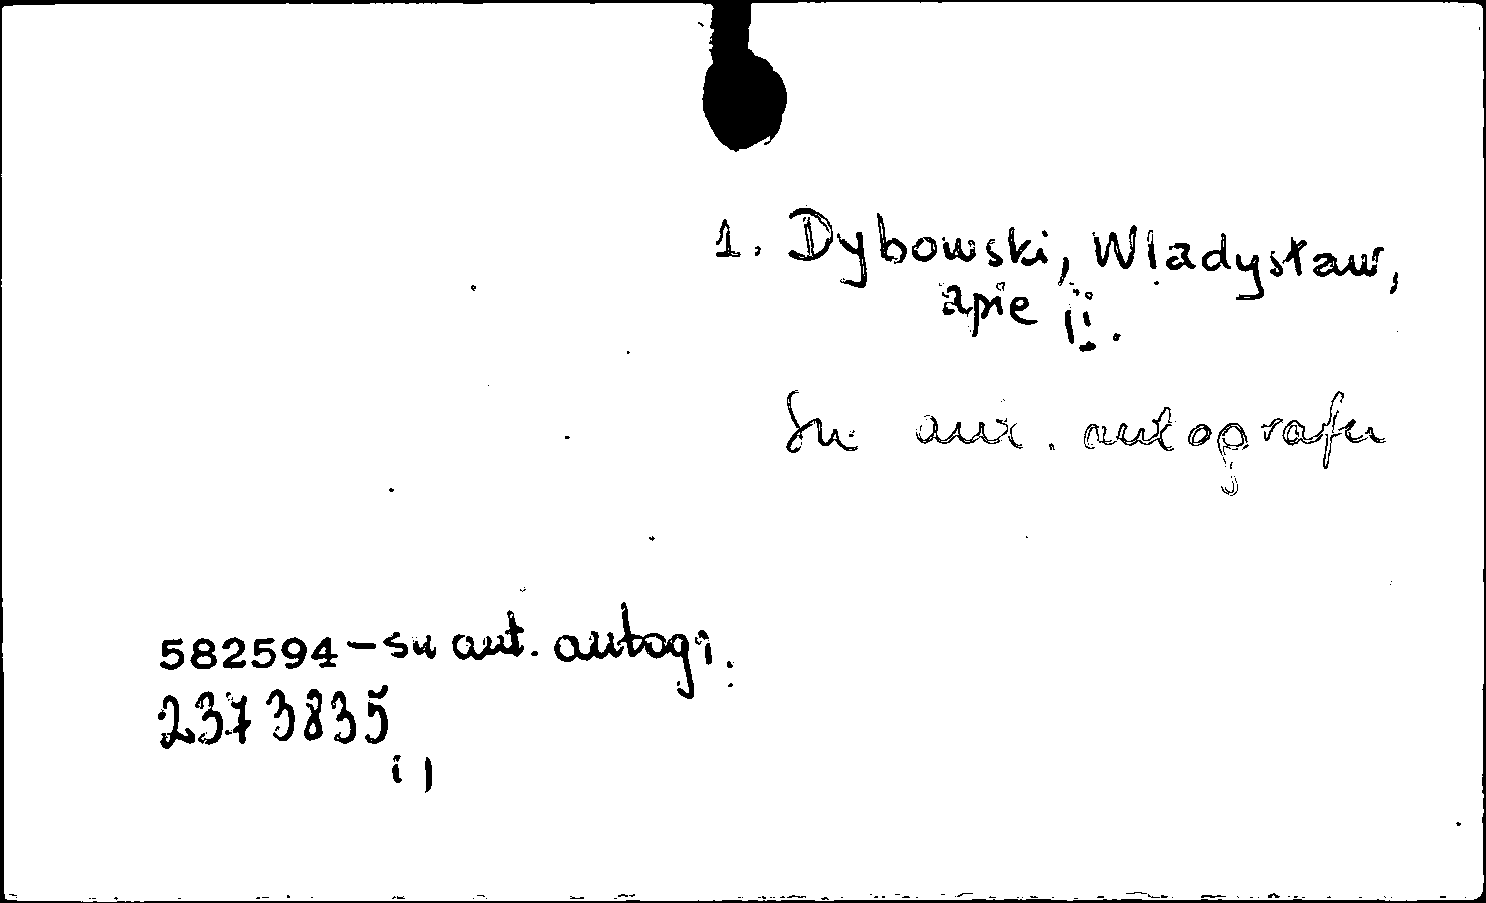 1. Dybowski, Wladysław,
apie jį.
Su aut. autografu
582594 – su aut. autogr.
2373835